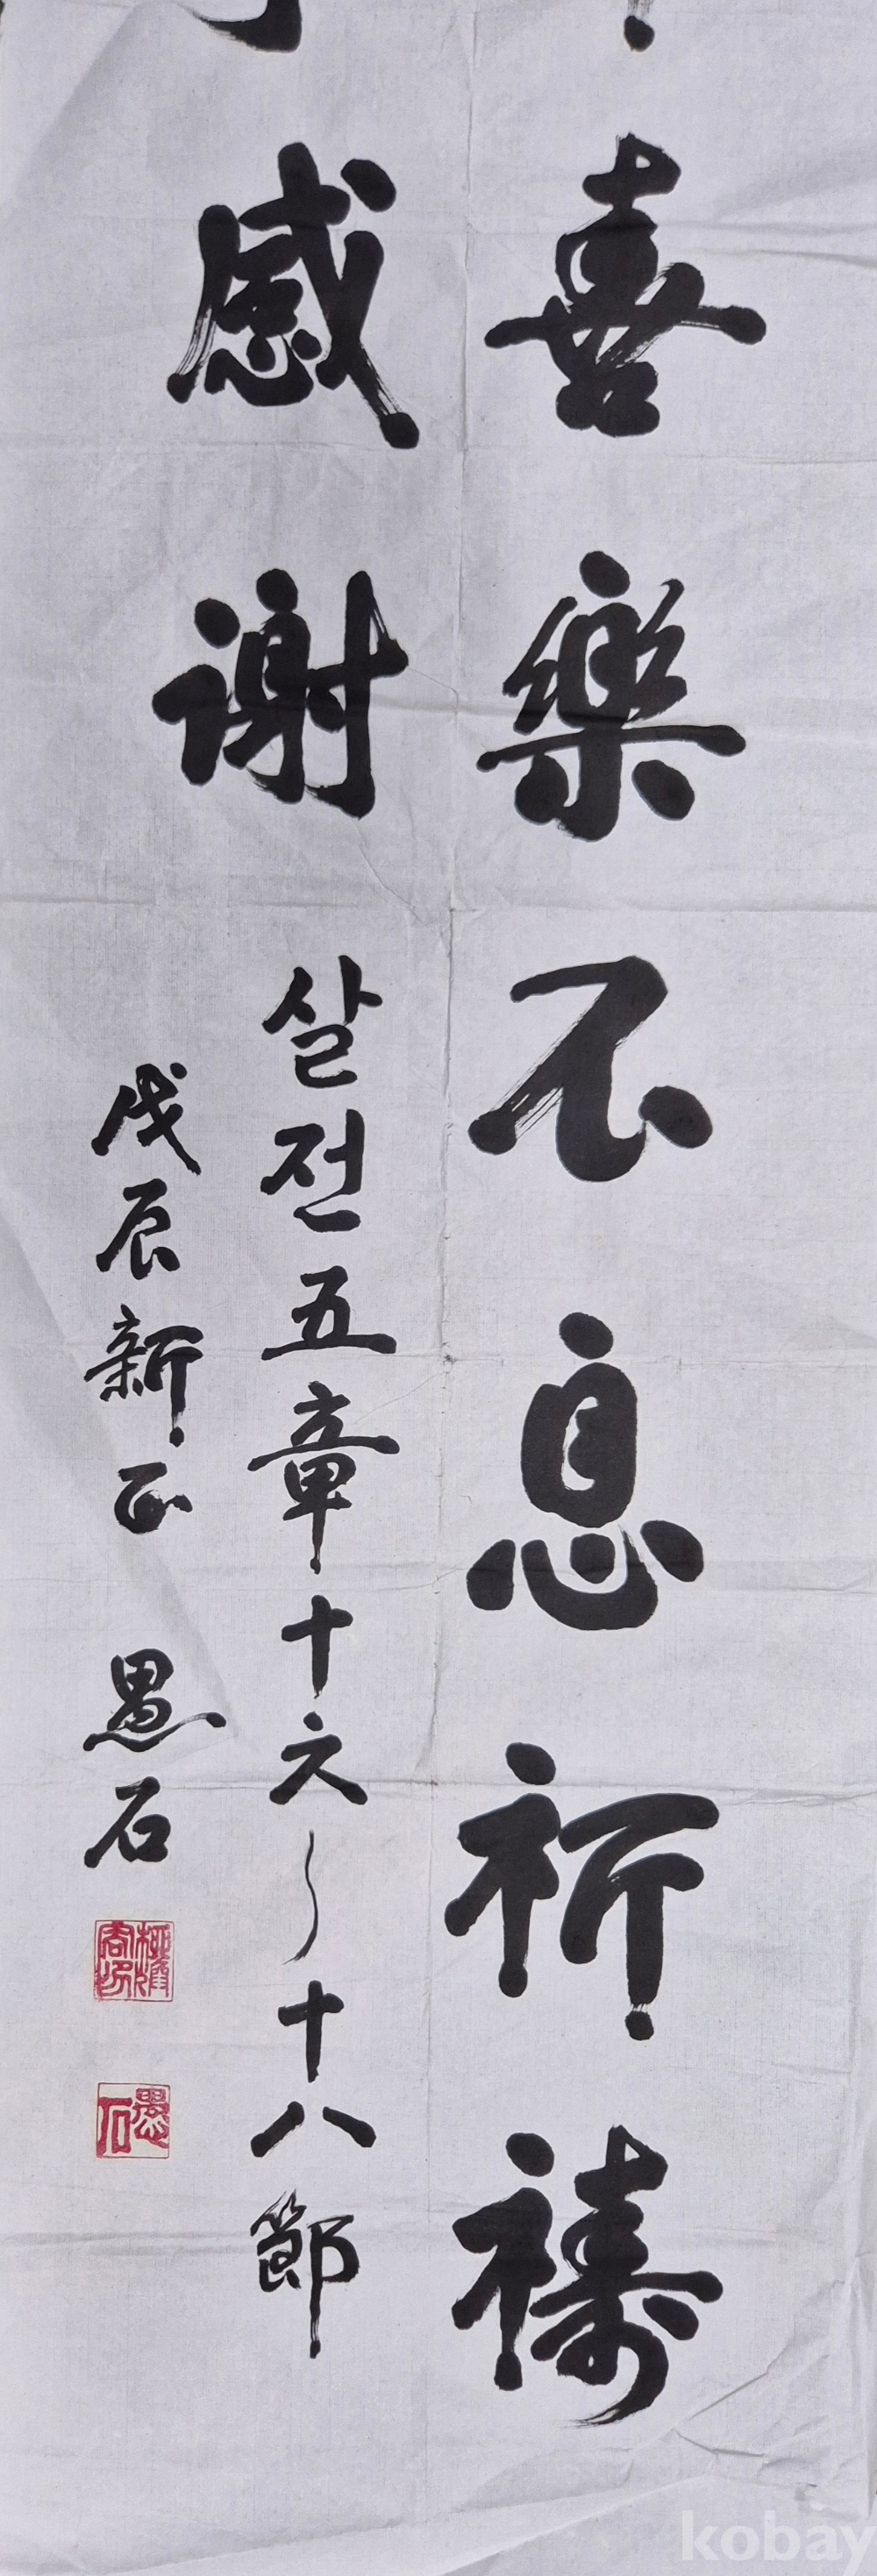 喜樂不息祈禱
感谢
살전五章十六~十八節
戊辰新正 愚石
愚石
kobay